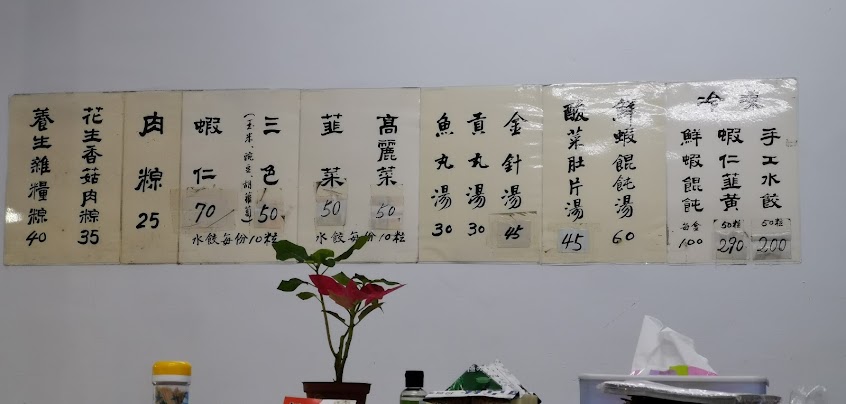 冷凍
手工水餃 50粒 200
蝦仁韮黃 50粒 290
鮮蝦餛飩 每盒 100
鮮蝦餛飩湯 60
酸菜肚片湯 45
金針湯 45
貢丸湯 30
魚丸湯 30
高麗菜 50
韮菜 50
水餃每份10粒
三色 50
(玉米、豌豆、胡蘿蔔)
蝦仁 70
水餃每份10粒
肉粽 25
花生香菇肉粽 35
養生雜糧粽 40